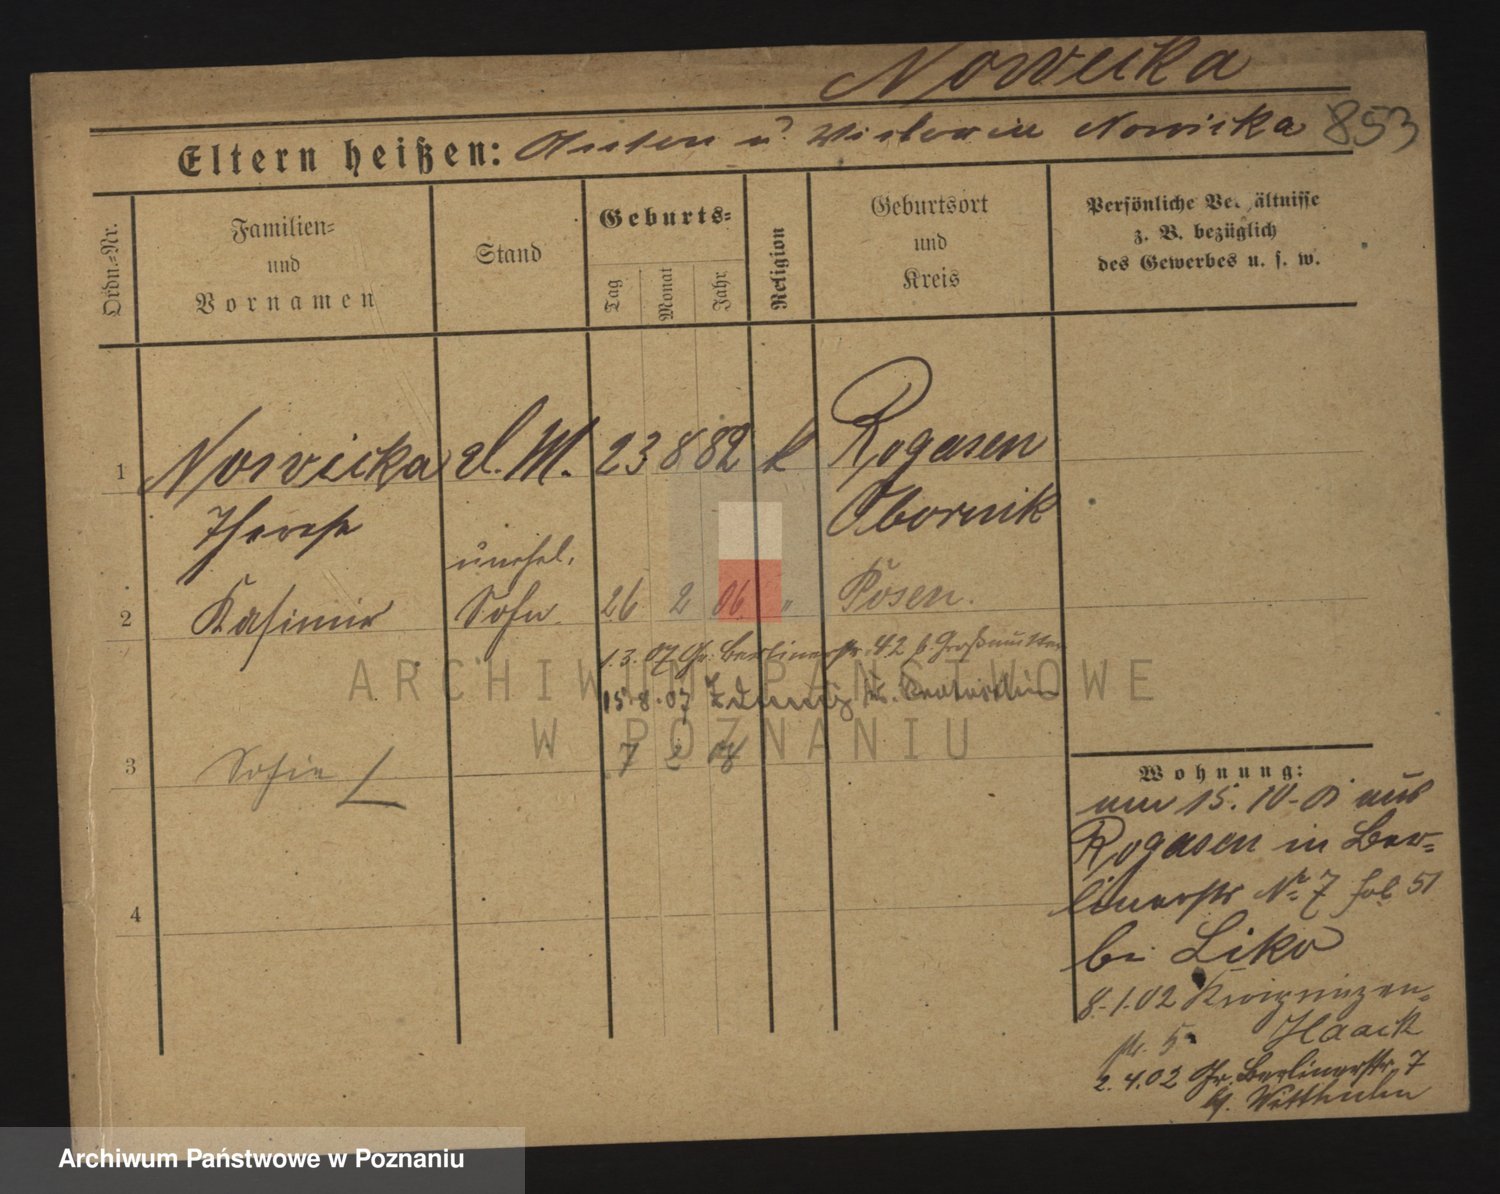 Nowicka
Eltern heißen: Anton u. Victoria Nowicka 853
Ordn.=Nr.
Familien=
und
Vornamen
Stand
Geburts=
Tag
Monat
Jahr
Religion
Geburtsort
und
Kreis
Persönliche Verhältnisse
z. B. bezüglich
des Gewerbes u. s. w.
1 Nowicka d. M. 23 8 82 k Rogasen
Therese Obornik
unehel.
2 Kasimir Sohn. 26 2 06 " Posen.
1.3.07 Gr. Berlinerstr. 42 b. Großmutter
15.8.07
3 Sofie 7 2 08
4
Wohnung:
am 15.10.01 aus
Rogasen in Ber=
linerstr No 7 fol. 51
bei Liko
8.1.02
str. 5 Haack
2.4.02 Gr. Berlinerstr. 7
ARCHIWUM PAŃSTWOWE
W POZNANIU
Archiwum Państwowe w Poznaniu